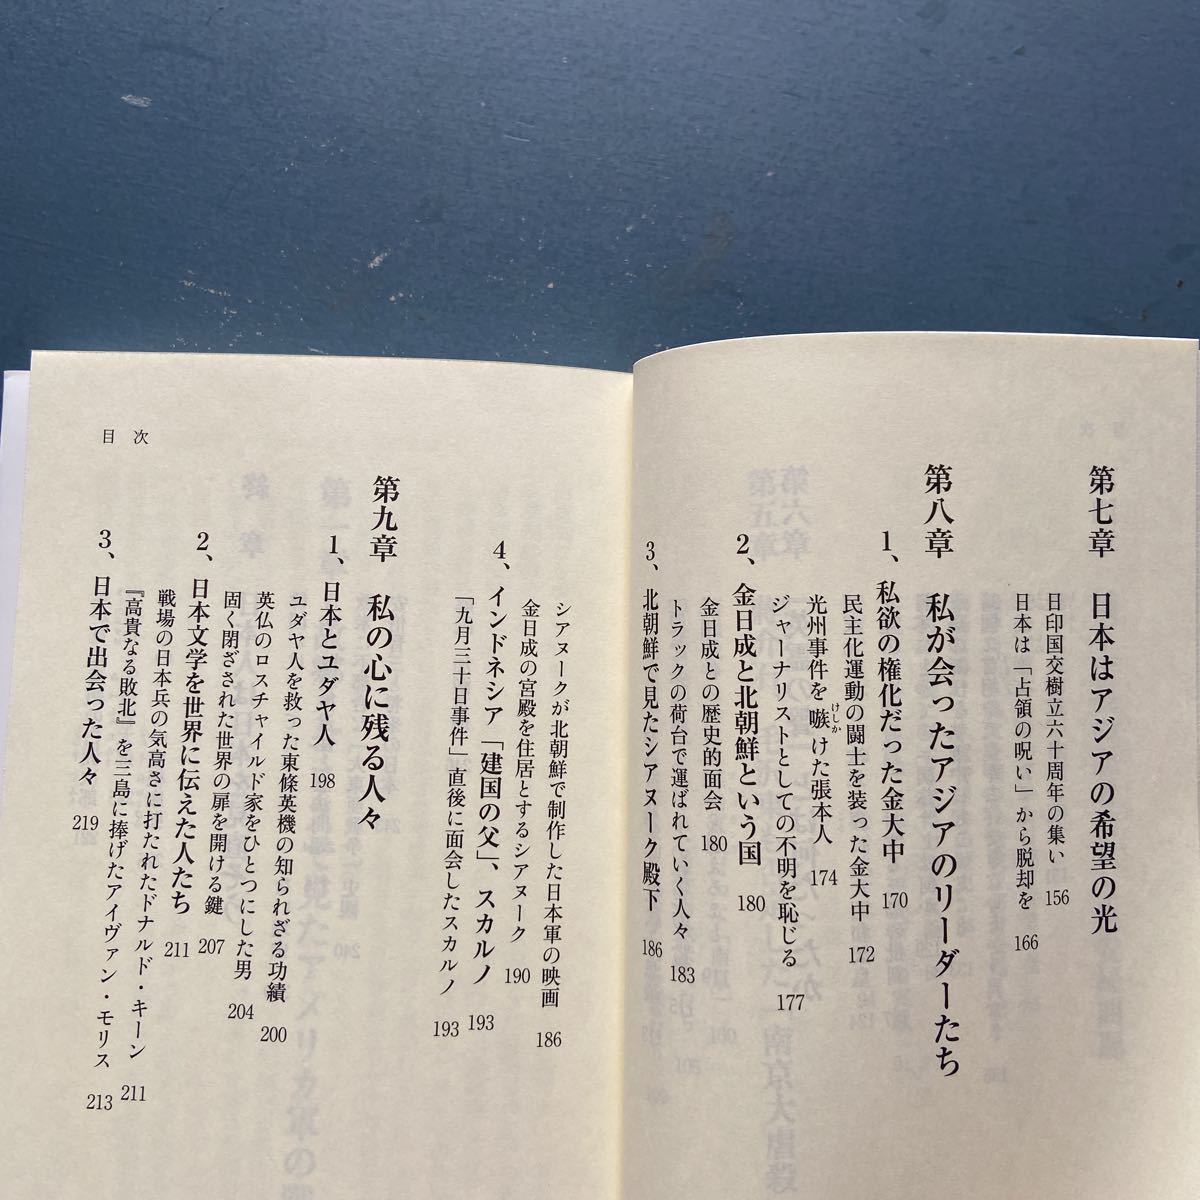 第七章 日本はアジアの希望の光
日印国交樹立六十周年の集い 156
日本は「占領の呪い」から脱却を 166
第八章 私が会ったアジアのリーダーたち
1、私欲の権化だった金大中 170
民主化運動の闘士を装った金大中 172
光州事件を嗾けた張本人 174
けしか
ジャーナリストとしての不明を恥じる 177
2、金日成と北朝鮮という国 180
金日成との歴史的面会 180
トラックの荷台で運ばれていく人々 183
3、北朝鮮で見たシアヌーク殿下 186
目次
シアヌークが北朝鮮で制作した日本軍の映画 186
金日成の宮殿を住居とするシアヌーク 190
4、インドネシア「建国の父」、スカルノ 193
「九月三十日事件」直後に面会したスカルノ 193
第九章 私の心に残る人々
1、日本とユダヤ人 198
ユダヤ人を救った東條英機の知られざる功績 200
英仏のロスチャイルド家をひとつにした男 204
固く閉ざされた世界の扉を開ける鍵 207
2、日本文学を世界に伝えた人たち 211
戦場の日本兵の気高さに打たれたドナルド・キーン 211
『高貴なる敗北』を三島に捧げたアイヴァン・モリス 213
3、日本で出会った人々 219